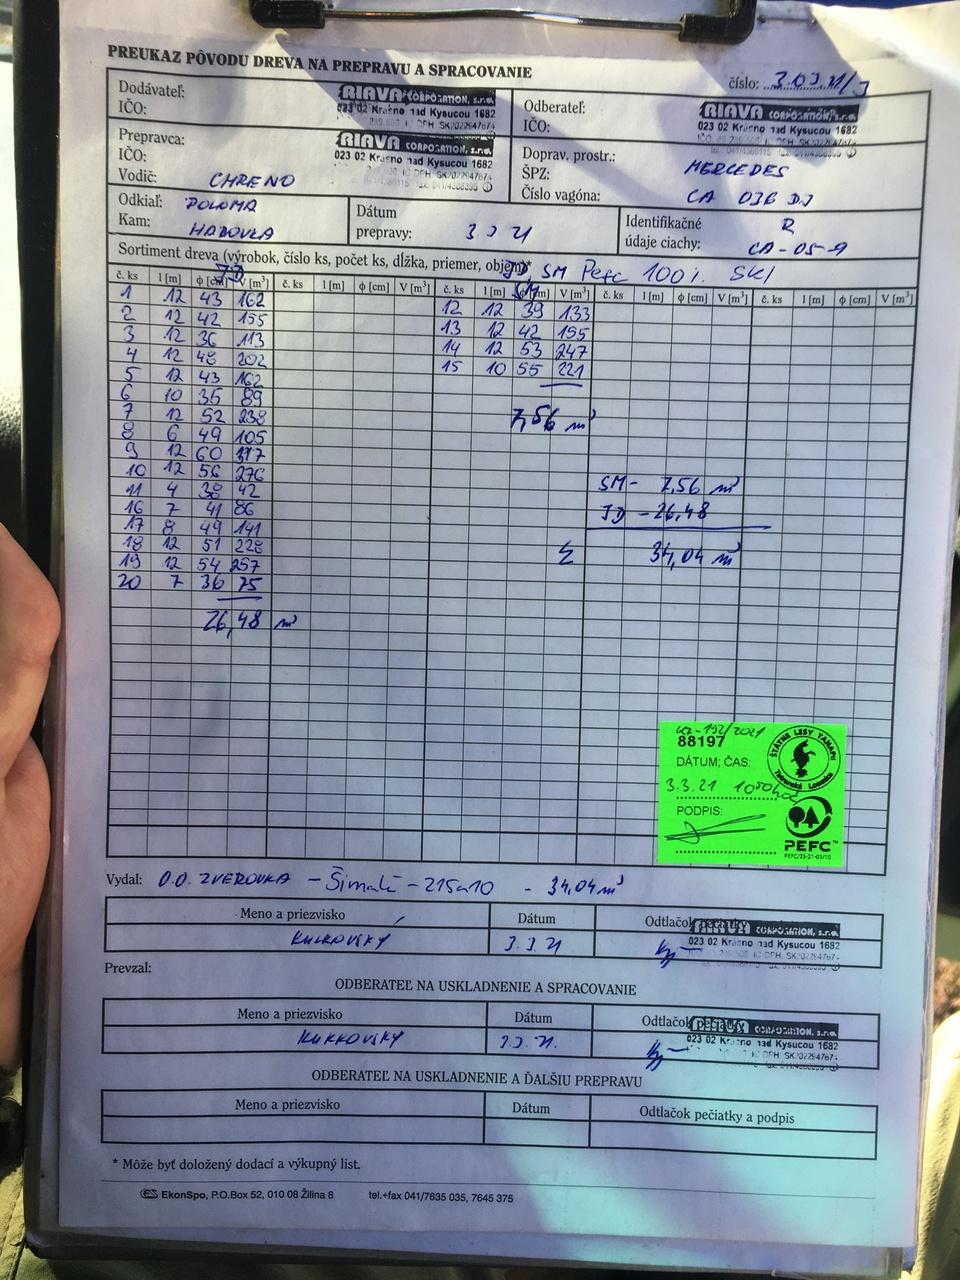 PREUKAZ PÔVODU DREVA NA PREPRAVU A SPRACOVANIE
číslo:
Dodávateľ:
IČO:
RIAVA CORPORATION, s.r.o.
023 02 Krásno nad Kysucou 1682
Odberateľ:
IČO:
RIAVA CORPORATION, s.r.o.
023 02 Krásno nad Kysucou 1682
Prepravca:
IČO:
Vodič: CHRENO
RIAVA CORPORATION, s.r.o.
023 02 Krásno nad Kysucou 1682
Doprav. prostr.: MERCEDES
ŠPZ:
Číslo vagóna: CA 036 DJ
Odkiaľ: POLOMA
Kam: HABOVKA
Dátum
prepravy: 3 3 21
Identifikačné R
údaje ciachy: CA-05-9
Sortiment dreva (výrobok, číslo ks, počet ks, dĺžka, priemer, objem)* JD, SM Pefc 100%. SK1
JD
SM
č. ks l [m] ϕ [cm] V [m³] č. ks l [m] ϕ [cm] V [m³] č. ks l [m] ϕ [cm] V [m³] č. ks l [m] ϕ [cm] V [m³] č. ks l [m] ϕ [cm] V [m³]
1 12 43 162
2 12 42 155
3 12 36 113
4 12 48 202
5 12 43 162
6 10 35 89
7 12 52 238
8 6 49 105
9 12 60 317
10 12 56 276
11 4 38 42
16 7 41 86
17 8 49 141
18 12 51 228
19 12 54 257
20 7 36 75
26,48 m³
12 12 39 133
13 12 42 155
14 12 53 247
15 10 55 221
7,56 m³
SM - 7,56 m³
JD - 26,48
Σ 34,04 m³
KZ-192/2021
88197
DÁTUM; ČAS:
3.3.21
PODPIS:
ŠTÁTNE LESY TANAPU
Tatranská Lomnica
PEFC™
PEFC/23-21-03/10
Vydal: O.O. ZVEROVKA - 215a10 - 34,04 m³
Meno a priezvisko Dátum Odtlačok pečiatky a podpis
KULKOVSKÝ 3.3 21
CORPORATION, s.r.o.
023 02 Krásno nad Kysucou 1682
Prevzal:
ODBERATEĽ NA USKLADNENIE A SPRACOVANIE
Meno a priezvisko Dátum Odtlačok pečiatky
KULKOVSKÝ 3.3. 21.
CORPORATION, s.r.o.
023 02 Krásno nad Kysucou 1682
ODBERATEĽ NA USKLADNENIE A ĎALŠIU PREPRAVU
Meno a priezvisko Dátum Odtlačok pečiatky a podpis
* Môže byť doložený dodací a výkupný list.
EkonSpo, P.O.Box 52, 010 08 Žilina 8 tel.+fax 041/7635 035, 7645 375